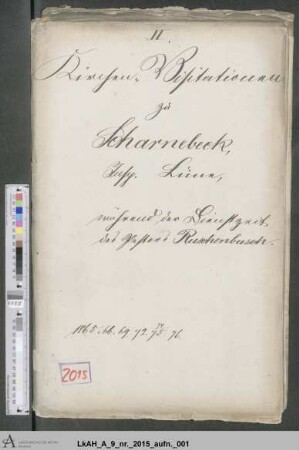 II.
Kirchen-Visitationen
zu
Scharnebeck,
Insp. Lüne,
während der Dienstzeit
des Pastors
1865. 66. 69. 72. 75. 76.
2015
LkAH_A_9_nr._2015_aufn._001